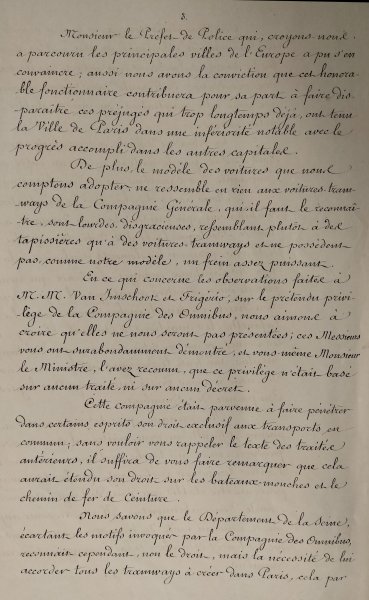 3.
Monsieur le Préfet de Police qui, croyons nous,
a parcouru les principales villes de l'Europe a pu s'en
convaincre; aussi nous avons la conviction que cet honora-
ble fonctionnaire contribuera pour sa part à faire dis-
paraître ces préjugés qui trop longtemps déjà, ont tenu
la Ville de Paris dans une infériorité notable avec le
progrès accompli dans les autres capitales.
De plus, le modèle des voitures que nous
comptons adopter, ne ressemble en rien aux voitures tram-
ways de la Compagnie Générale, qui, il faut le reconnaî-
tre, sont lourdes, disgracieuses, ressemblant plutôt à des
tapissières qu'à des voitures-tramways et ne possédent
pas, comme notre modèle, un frein assez puissant.
En ce qui concerne les observations faites à
M. M. Van Imschoot et Frigério, sur le prétendu privi-
lège de la Compagnie des Omnibus, nous aimons à
croire qu'elles ne nous seront pas présentées; ces Messieurs
vous ont surabondamment démontré, et vous-même Monsieur
le Ministre, l'avez reconnu, que ce privilège n'était basé
sur aucun traité ni sur aucun décret.
Cette compagnie était parvenue à faire pénétrer
dans certains esprits son droit exclusif aux transports en
commun; sans vouloir vous rappeler le texte des traités
antérieurs, il suffira de vous faire remarquer que cela
aurait étendu son droit sur les bateaux-mouches et le
chemin de fer de Ceinture.
Nous savons que le Département de la Seine,
écartant les motifs invoqués par la Compagnie des Omnibus,
reconnait cependant, non le droit, mais la nécessité de lui
accorder tous les tramways à créer dans Paris, cela par